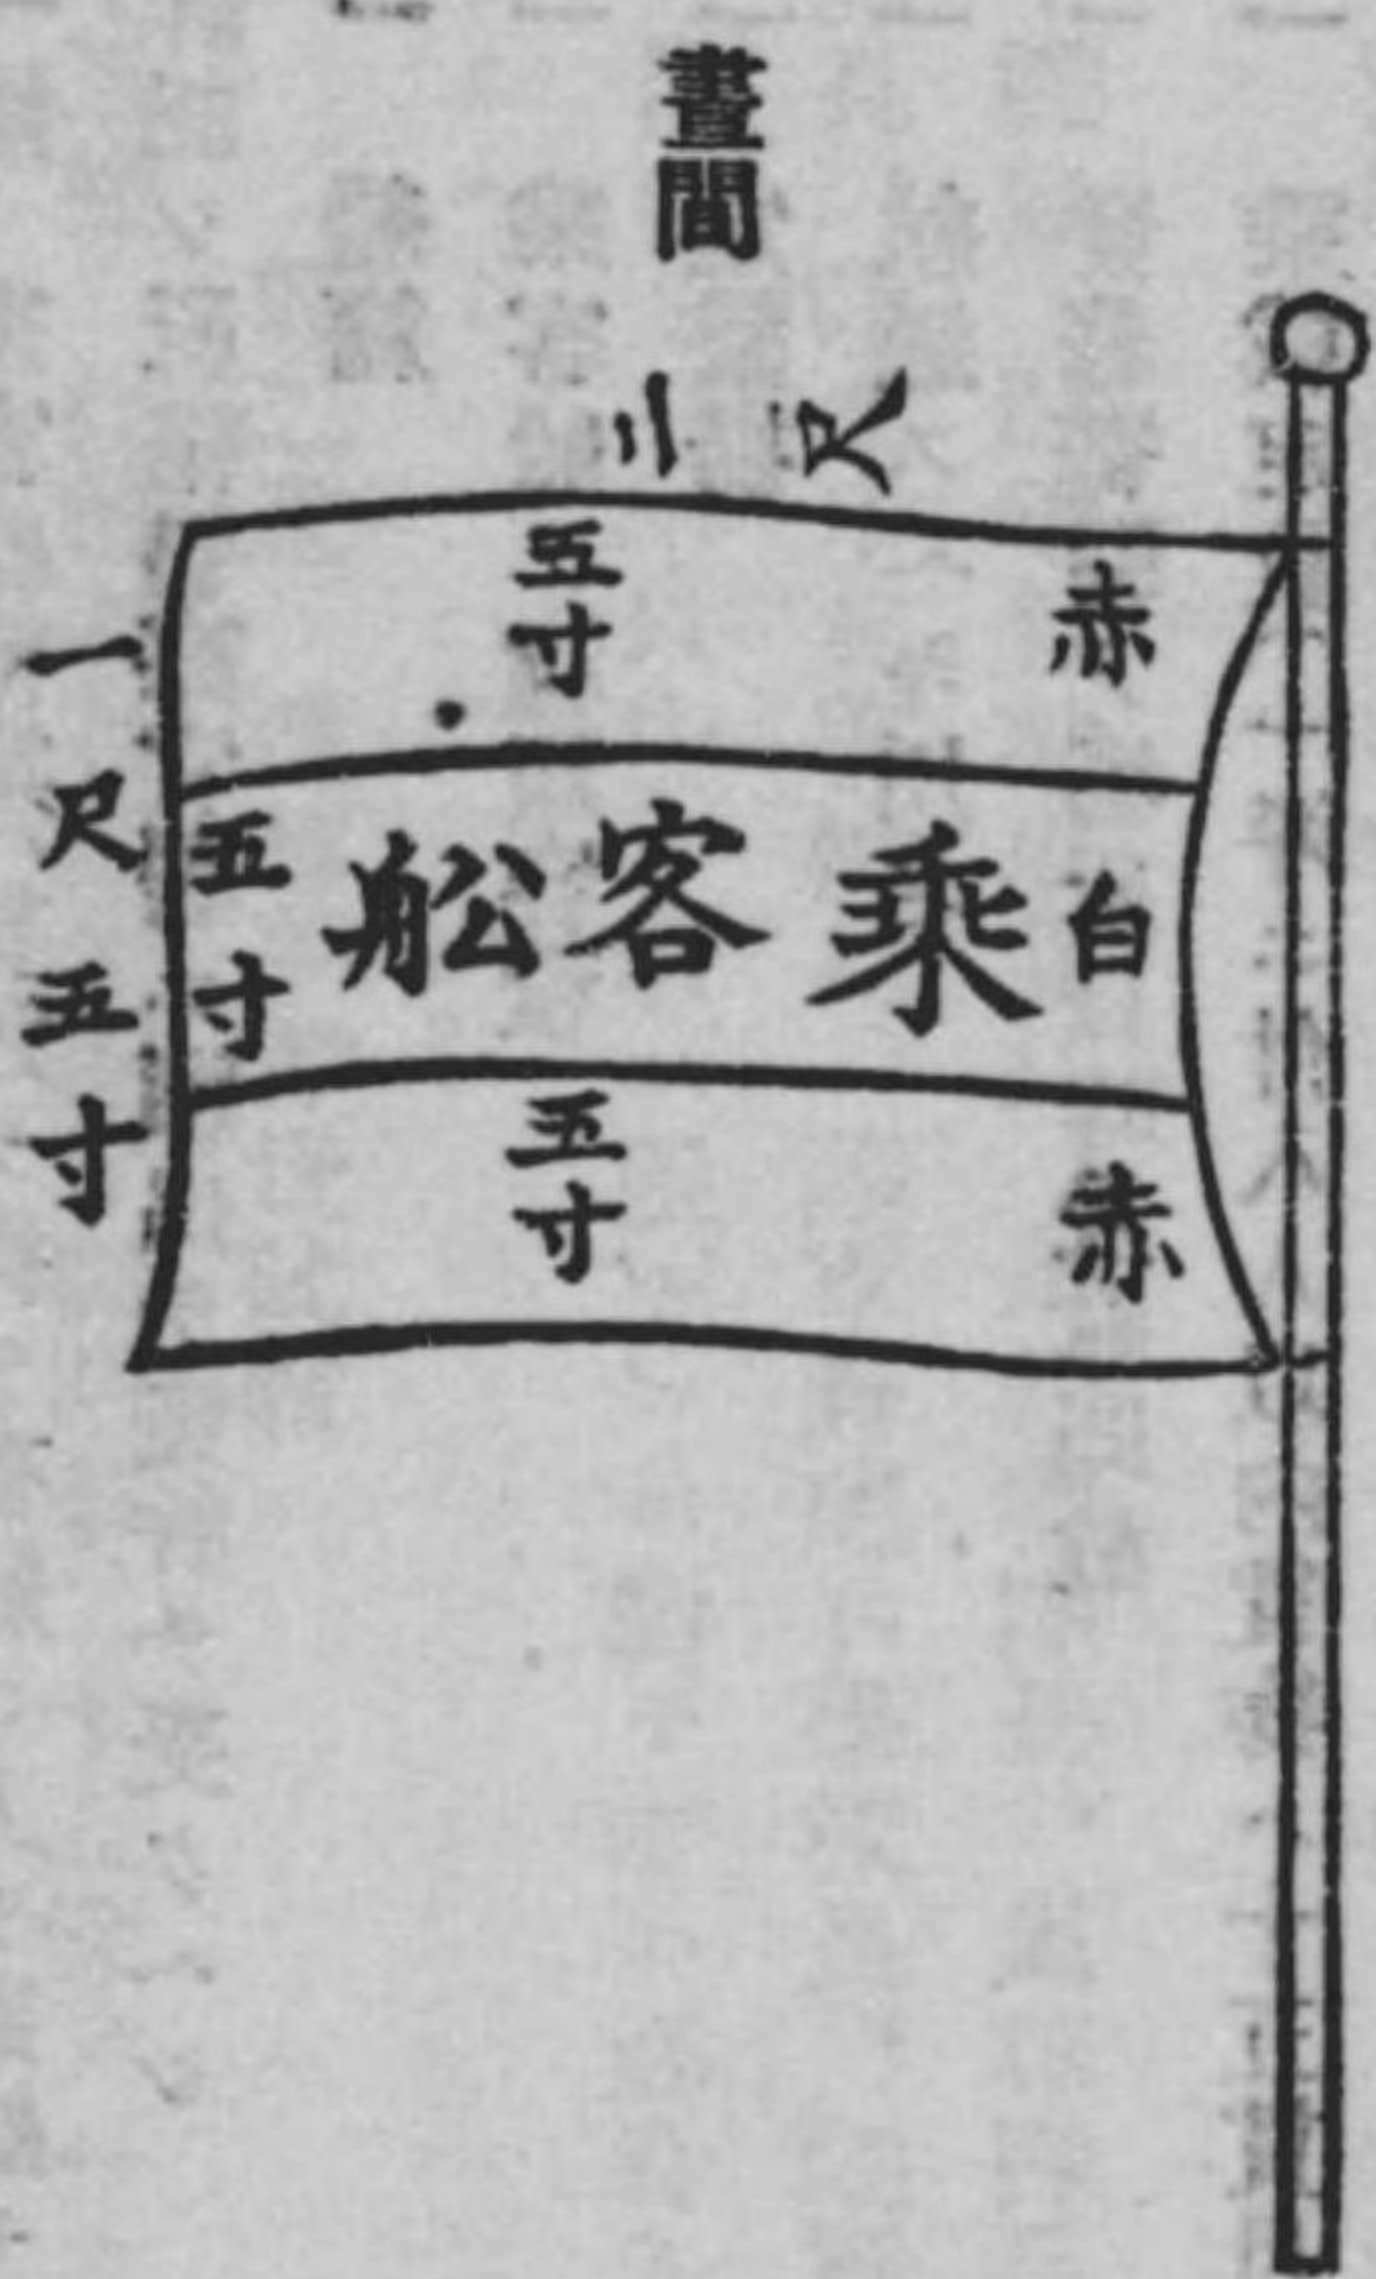 晝間
二尺
赤
五寸
白
乘客舩
五寸
赤
五寸
一尺五寸